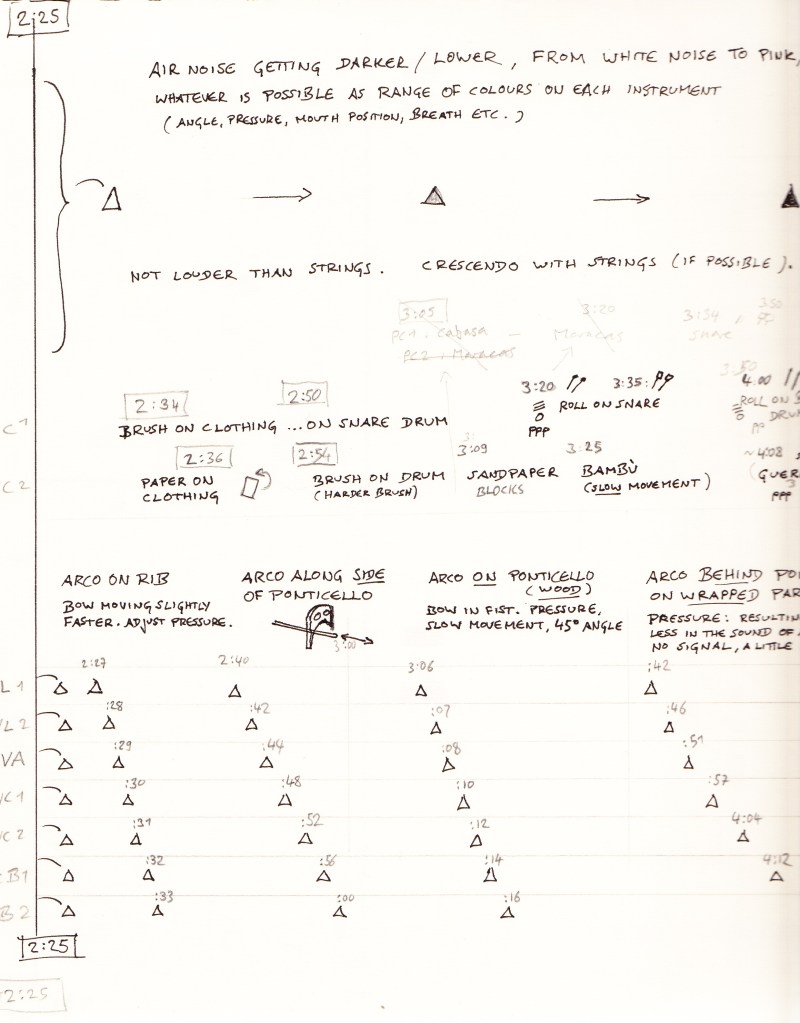 2:25
AIR NOISE GETTING DARKER / LOWER, FROM WHITE NOISE TO PINK,
WHATEVER IS POSSIBLE AS RANGE OF COLOURS ON EACH INSTRUMENT
(ANGLE, PRESSURE, MOUTH POSITION, BREATH ETC.)
NOT LOUDER THAN STRINGS. CRESCENDO WITH STRINGS (IF POSSIBLE).
3:05 3:20 3:34 3:50
PC1, Cabasa — Maracas Snare
PC2, Maracas
2:34 2:50 3:20 3:35: 4.00
ROLL ON SNARE
ppp
C 1 BRUSH ON CLOTHING ...ON SNARE DRUM
2:36 2:54 3:09 3:25 ~4:08
C 2 PAPER ON CLOTHING BRUSH ON DRUM (HARDER BRUSH) SANDPAPER BLOCKS BAMBÙ (SLOW MOVEMENT)
ppp
ARCO ON RIB
BOW MOVING SLIGHTLY
FASTER. ADJUST PRESSURE.
ARCO ALONG SIDE
OF PONTICELLO
3:00
ARCO ON PONTICELLO
(WOOD)
BOW IN FIST. PRESSURE,
SLOW MOVEMENT, 45° ANGLE
ARCO BEHIND PO
ON WRAPPED PAR
PRESSURE: RESULTIN
LESS IN THE SOUND OF
NO SIGNAL, A LITTLE
2:27 2:40 3:06 :42
L 1
:28 :42 :07 :46
L 2
:29 :44 :08 :51
VA
:30 :48 :10 :57
C 1
:31 :52 :12 4:04
C 2
:32 :56 :14 4:12
B1
:33 :00 :16
B 2
2:25
2:25